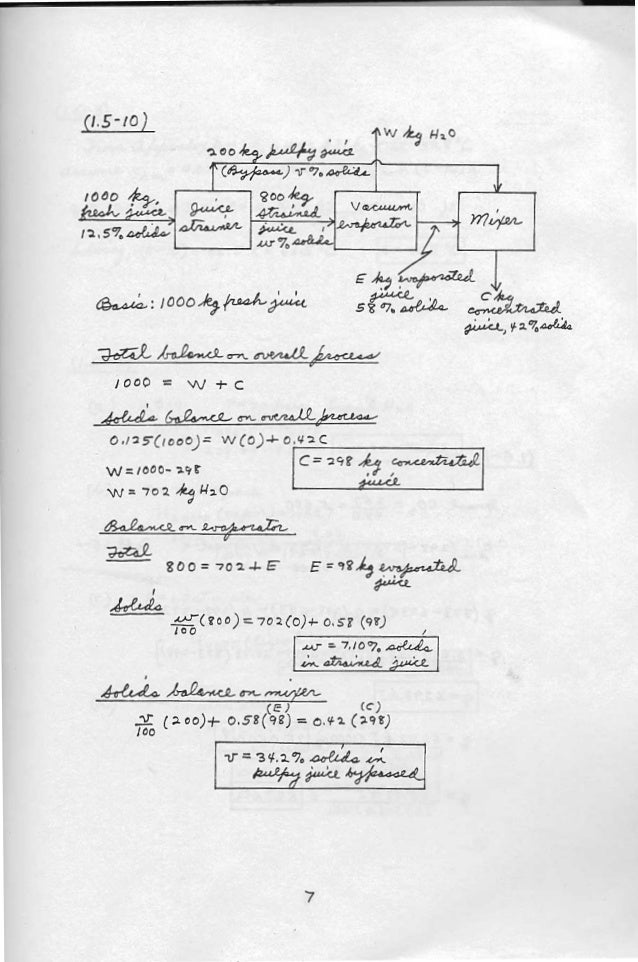 (1.5-10)
W kg H₂O
200 kg pulpy juice
(Bypass) v % solids
1000 kg.
fresh juice
12.5% solids
Juice
strainer
800 kg
strained
juice
w % solids
Vacuum
evaporator
Mixer
E kg evaporated
juice
58 % solids
C kg
concentrated
juice, 42% solids
Basis: 1000 kg fresh juice
Total balance on overall process
1000 = W + C
Solids balance on overall process
0.125(1000) = W(0) + 0.42C
C = 298 kg concentrated
juice
W = 1000 - 298
W = 702 kg H₂O
Balance on evaporator
Total
800 = 702 + E E = 98 kg evaporated
juice
Solids
w/100 (800) = 702(0) + 0.58 (98)
w = 7.10% solids
in strained juice
Solids balance on mixer
(E) (C)
v/100 (200) + 0.58(98) = 0.42 (298)
v = 34.2% solids in
pulpy juice bypassed
7